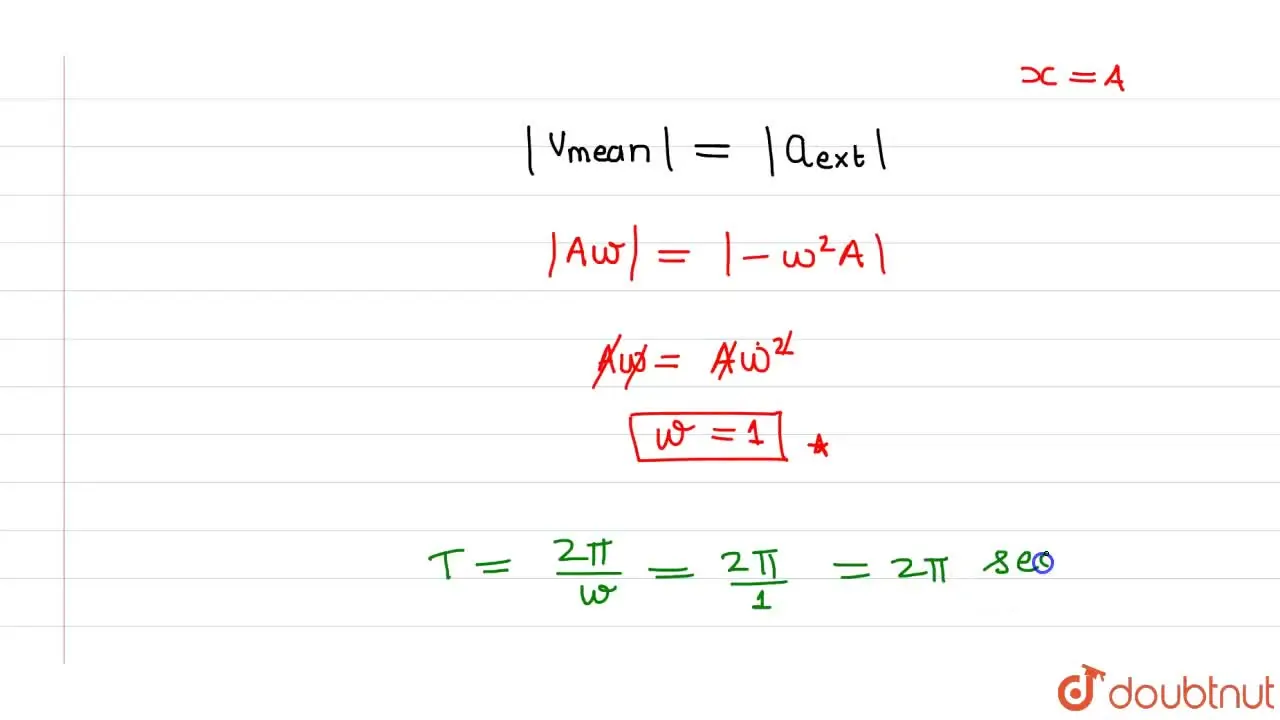 x = A
|Vmean| = |aext|
|Aω| = |-ω²A|
Aω = Aω²
ω = 1 *
T = 2π/ω = 2π/1 = 2π sec
doubtnut